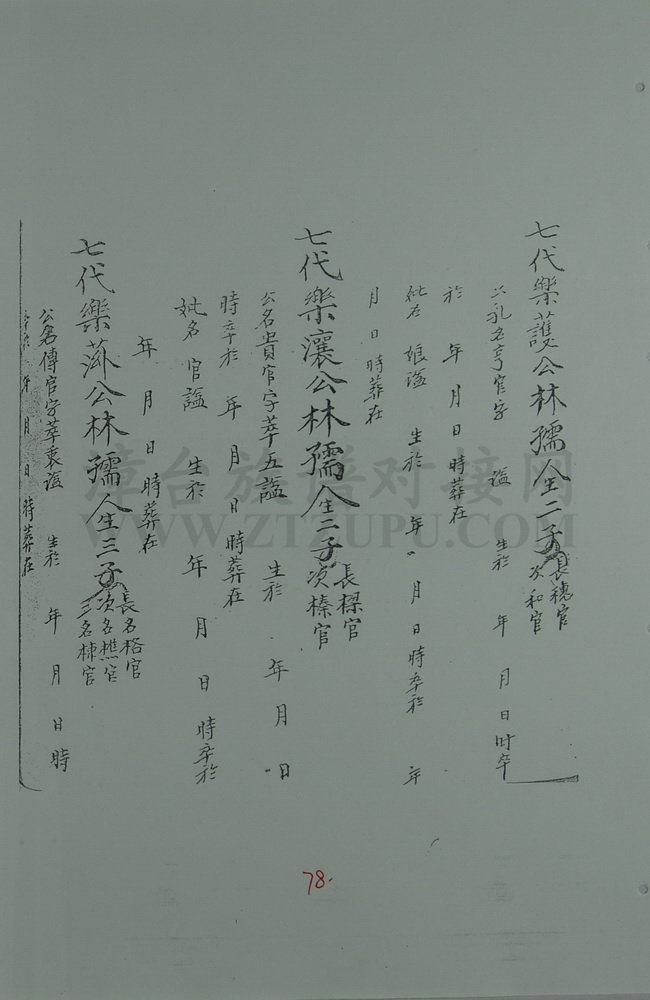 七代樂護公林孺人生二子 長穗官
次和官
公乳名亨官字 謚 生於 年 月 日時卒
於 年 月 日時葬在
妣名 娘謚 生於 年 月 日時卒於 年
月 日時葬在
七代樂瀼公林孺人生二子 長樑官
次榛官
公名貴官字萃五謚 生於 年 月 日
時卒於 年 月 日時葬在
妣名 官謚 生於 年 月 日 時卒於
年 月 日時葬在
七代樂 公林孺人生三子 長名格官
次名樵官
三名棟官
公名傳官字萃衷謚 生於 年 月 日 時
卒於 年 月 日 時葬在
漳台族谱对接网
WWW.ZTZUPU.COM
78.